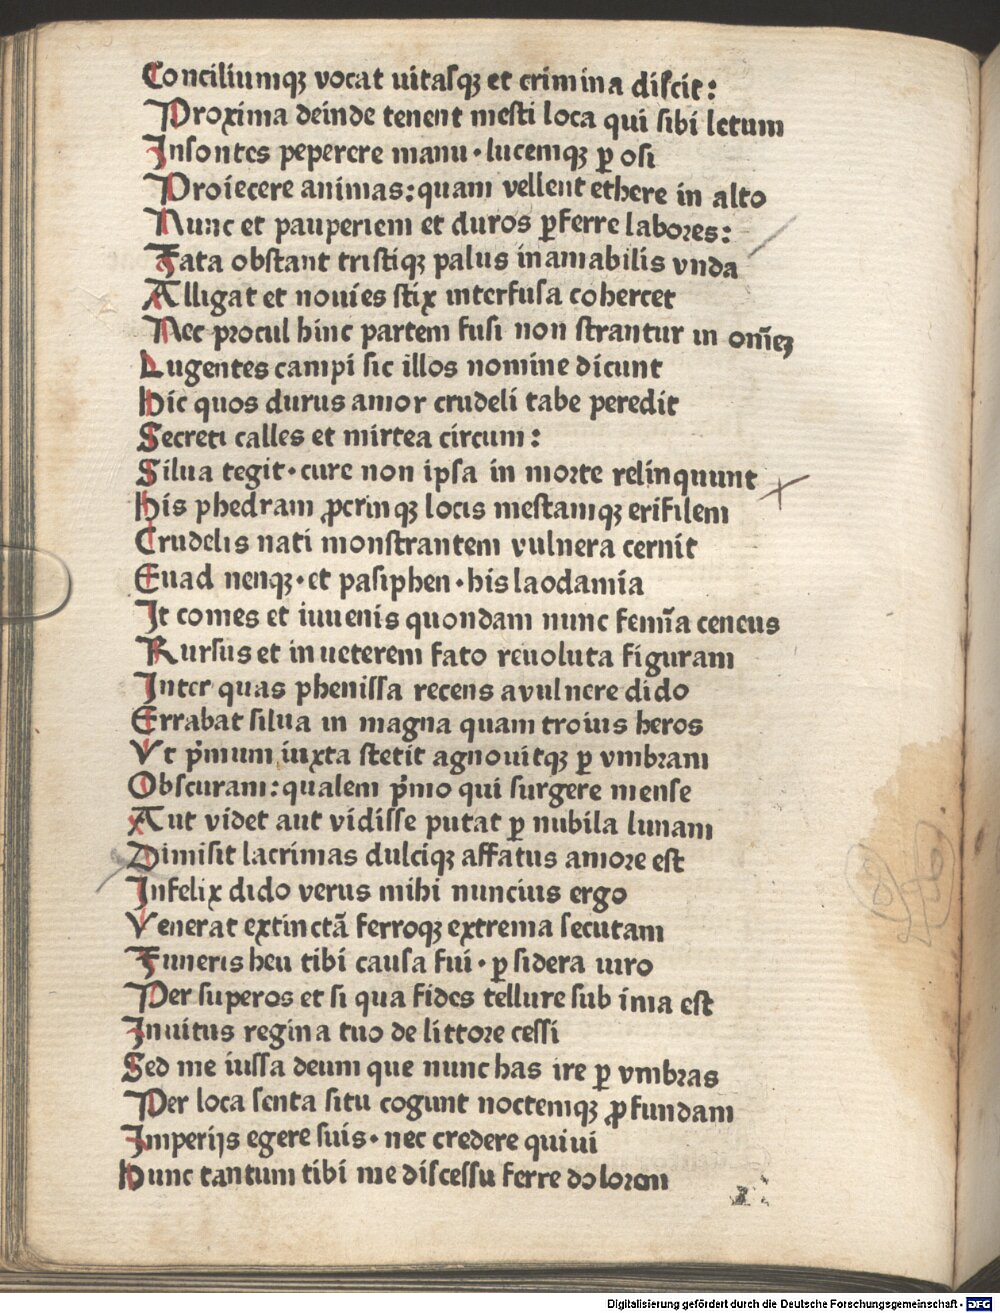 Conciliumqꝫ vocat uitasqꝫ et crimina discit:
Proxima deinde tenent mesti loca qui sibi letum
Insontes peperere manu·lucemqꝫ ꝑ osi
Proiecere animas:quam vellent ethere in alto
Nunc et pauperiem et duros ꝑferre labores:
Fata obstant tristiqꝫ palus inamabilis vnda
Alligat et nouies stix interfusa cohercet
Nec procul hinc partem fusi non strantur in om̄eꝫ
Lugentes campi sic illos nomine dicunt
Hic quos durus amor crudeli tabe peredit
Secreti calles et mirtea circum:
Silua tegit·cure non ipsa in morte relinquunt
His phedram ꝓcrinqꝫ locis mestamqꝫ erifilem
Crudelis nati monstrantem vulnera cernit
Euad nenqꝫ·et pasiphen·his laodamia
It comes et iuuenis quondam nunc femīa ceneus
Rursus et in ueterem fato reuoluta figuram
Inter quas phenissa recens a vulnere dido
Errabat silua in magna quam troius heros
Vt p̄mum iuxta stetit agnouitqꝫ ꝑ vmbram
Obscuram:qualem p̄mo qui surgere mense
Aut videt aut vidisse putat ꝑ nubila lunam
Dimisit lacrimas dulciqꝫ affatus amore est
Infelix dido verus mihi nuncius ergo
Venerat extinctā ferroqꝫ extrema secutam
Funeris heu tibi causa fui·ꝑ sidera iuro
Per superos et si qua fides tellure sub ima est
Inuitus regina tuo de littore cessi
Sed me iussa deum que nunc has ire ꝑ vmbras
Per loca senta situ cogunt noctemqꝫ ꝓfundam
Imperijs egere suis·nec credere quiui
Hunc tantum tibi me discessu ferre dolorem
Digitalisierung gefördert durch die Deutsche Forschungsgemeinschaft - DFG